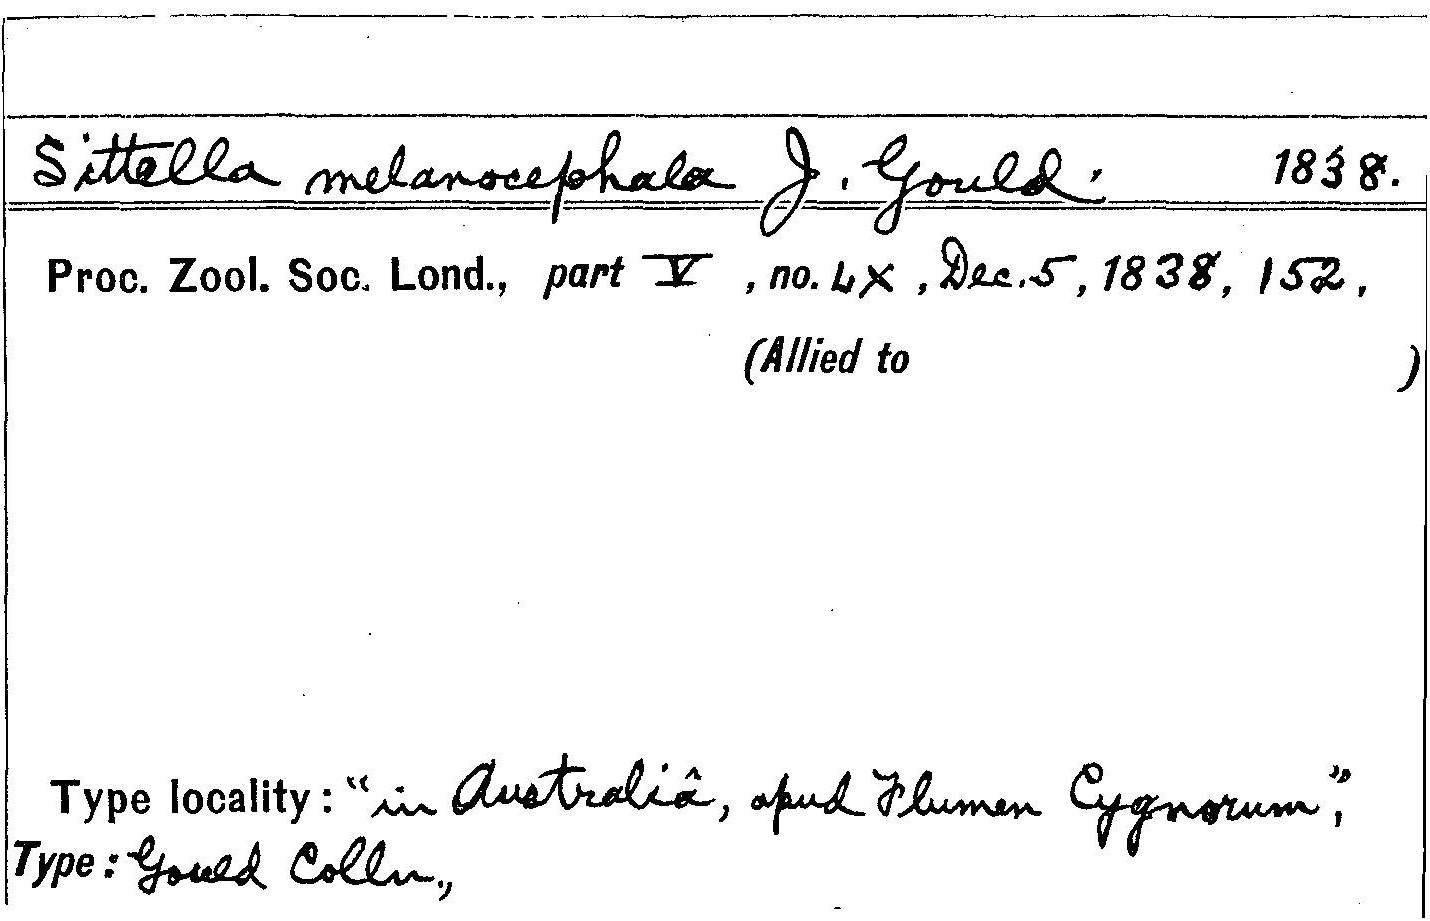 Sittella melanocephala J. Gould. 1838.
Proc. Zool. Soc. Lond., part V, no. LX, Dec. 5, 1838, 152.
(Allied to )
Type locality: "in Australiâ, apud Flumen Cygnorum",
Type: Gould Colln.,